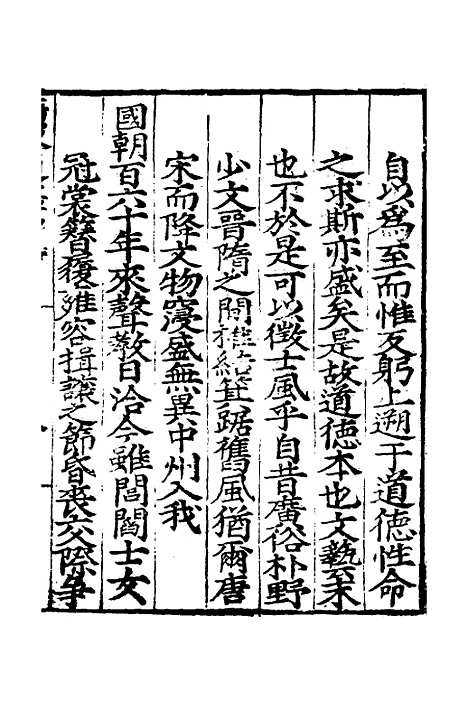 自以爲至而惟反躬上遡于道德性命
之求斯亦盛矣是故道德本也文藝末
也不於是可以徵士風乎自昔廣俗朴野
少文晉隋之間椎結箕踞舊風猶爾唐
宋而降文物寖盛無異中州入我
國朝百六十年來聲教日洽今雖閭閻士女
冠裳簪履雍容揖讓之節昏喪交際爭